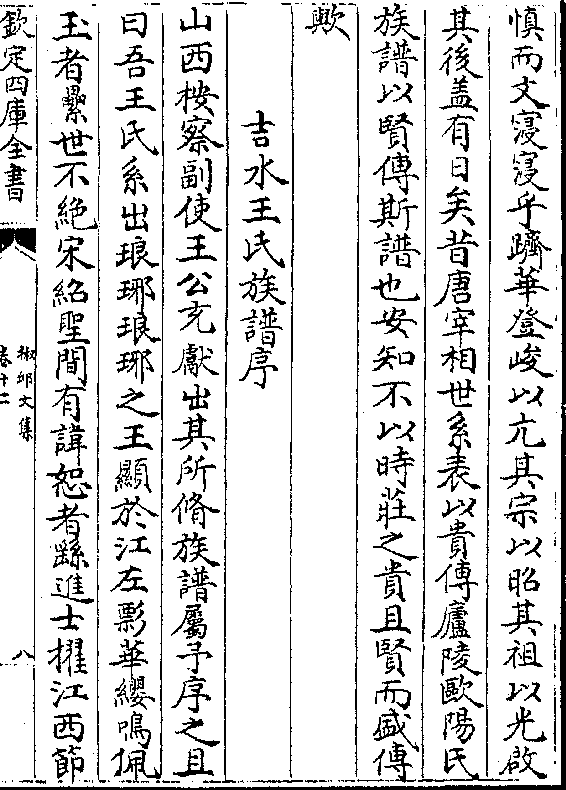 慎而文寖寖乎躋華登峻以亢其宗以昭其祖以光啟
其後盖有日矣昔唐宰相世系表以貴傳廬陵歐陽氏
族譜以賢傳斯譜也安知不以時莊之貴且賢而盛傳
歟
吉水王氏族譜序
山西按察副使王公克獻出其所脩族譜屬予序之且
曰吾王氏系出琅琊琅琊之王顯於江左影華纓鳴佩
玉者纍世不絶宋紹聖間有諱恕者繇進士擢江西節
欽定四庫全書
椒邱文集
卷十二
八